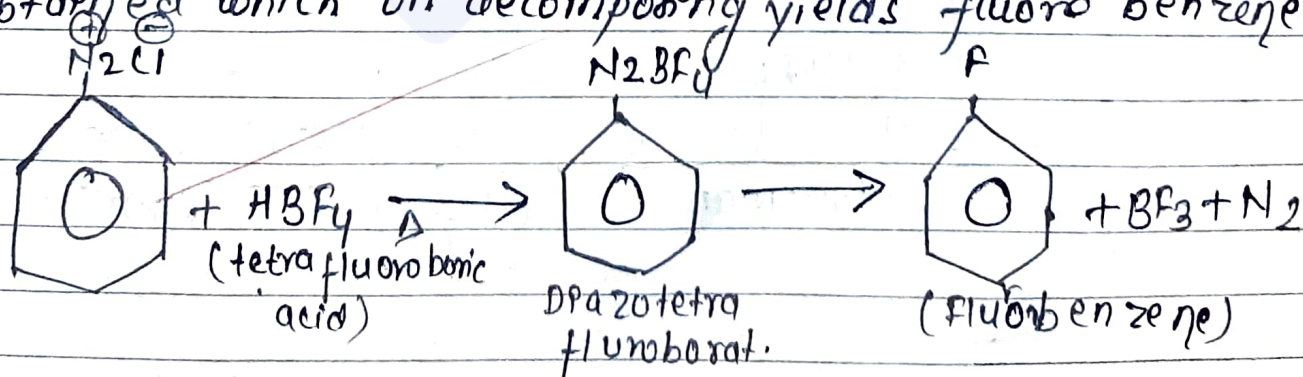 which on decomposing yields fluoro benzene
⊕ ⊖
N2Cl N2BF4 F
+ HBF4 Δ → → +BF3+N2
(tetrafluoroboric
acid) DPazotetra (Fluorbenzene)
flunoborat.